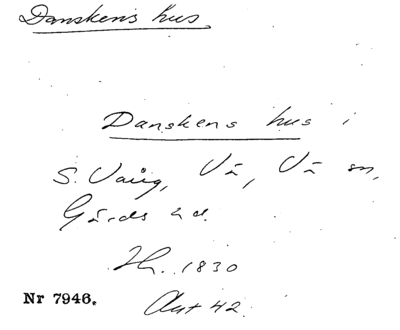 Danskens hus
Danskens hus i
S. Vång, Vä, Vä sn,
Gärds hd.
Hr. 1830
Nr 7946.
Akt 42